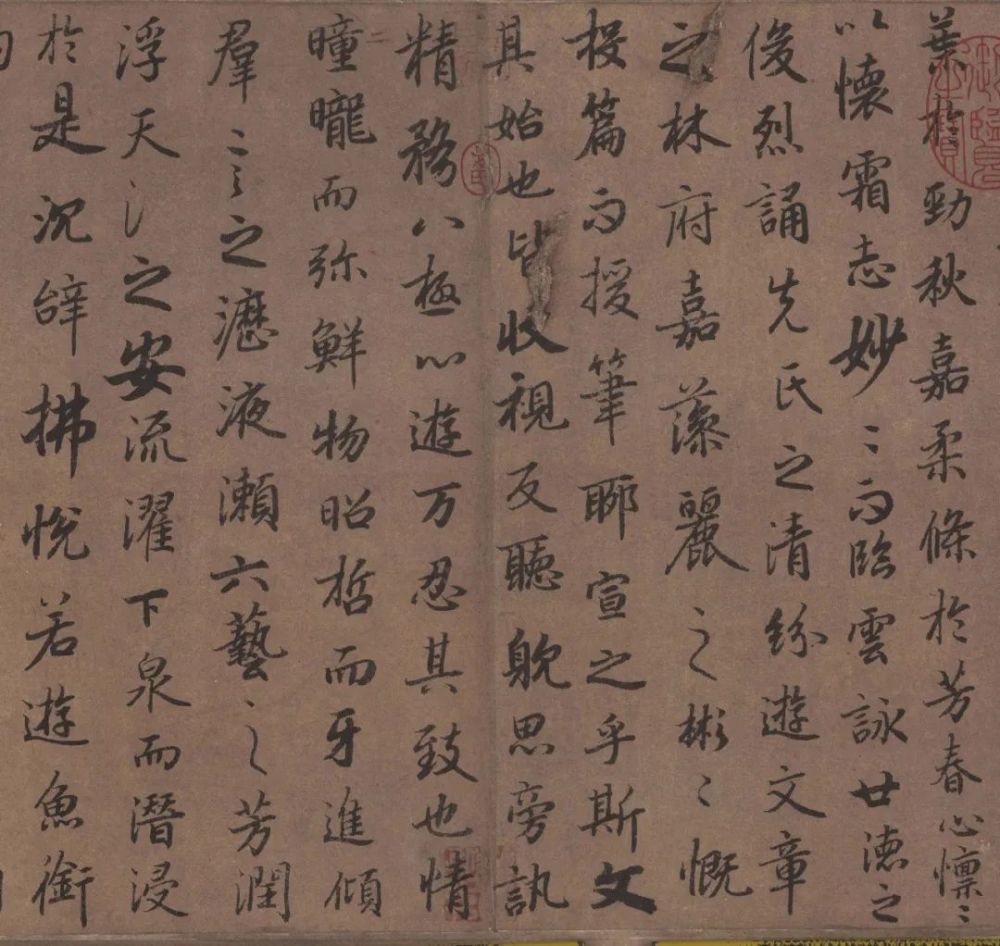 葉於勁秋嘉柔條於芳春心懍〻
以懷霜志妙〻而臨雲詠廿德之
俊烈誦先氏之清紛遊文章
之林府嘉藻麗之彬〻慨
投篇而授筆聊宣之乎斯文
其始也皆收視反聽躭思旁訊
精務八極心遊万忍其致也情
曈曨而弥鮮物昭哲而牙進傾
羣言之瀝液瀨六藝之芳潤
浮天氵之安流濯下泉而潛浸
於是沉辝拂悅若遊魚銜